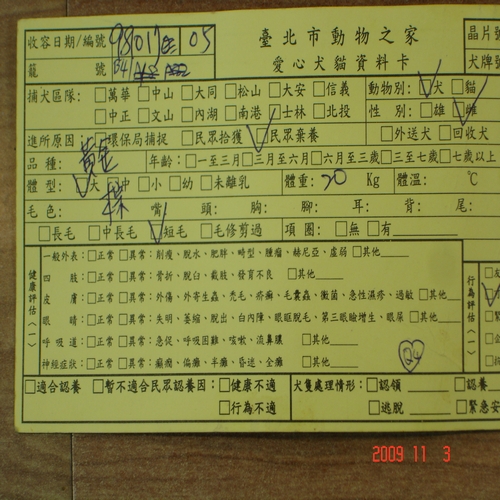 臺北市動物之家
愛心犬貓資料卡
收容日期/編號 05
籠 號
晶片號
犬牌號
捕犬區隊: □萬華 □中山 □大同 □松山 □大安 □信義
□中正 □文山 □內湖 □南港 □士林 □北投
動物別: □犬 □貓
性 別: □雄 □雌
進所原因: □環保局捕捉 □民眾拾獲 □民眾棄養 □外送犬 □回收犬
品 種: 年齡: □一至三月 □三月至六月 □六月至三歲 □三至七歲 □七歲以上
體 型: □大 □中 □小 □幼 □未離乳 體重: 20 Kg 體溫: ℃
毛 色: 嘴: 頭: 胸: 腳: 耳: 背: 尾:
□長毛 □中長毛 □短毛 □毛修剪過 項 圈: □無 □有
健康評估(一)
一般外表: □正常 □異常: 削瘦、脫水、肥胖、畸型、腫瘤、赫尼亞、虛弱 □其他
四 肢: □正常 □異常: 骨折、脫臼、截肢、發育不良 □其他
皮 膚: □正常 □異常: 外傷、外寄生蟲、禿毛、疥癬、毛囊蟲、黴菌、急性濕疹、過敏 □其他
眼 睛: □正常 □異常: 失明、萎縮、脫出、白內障、眼眶脫毛、第三眼瞼增生、眼屎 □其他
呼 吸 道: □正常 □異常: 急促、呼吸困難、咳嗽、流鼻膿 □其他
神經症狀: □正常 □異常: 癲癇、偏癱、半癱、昏迷、全癱 □其他
行為評估(一)
□適合認養 □暫不適合民眾認養因: □健康不適
□行為不適
犬隻處理情形: □認領 □認養
□逃脫 □緊急安
2009 11 3